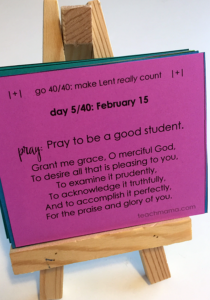 |+| go 40/40: make Lent really count |+|
day 5/40: February 15
pray: Pray to be a good student.
Grant me grace, O merciful God,
To desire all that is pleasing to you,
To examine it prudently,
To acknowledge it truthfully,
And to accomplish it perfectly,
For the praise and glory of you.
teachmama.com